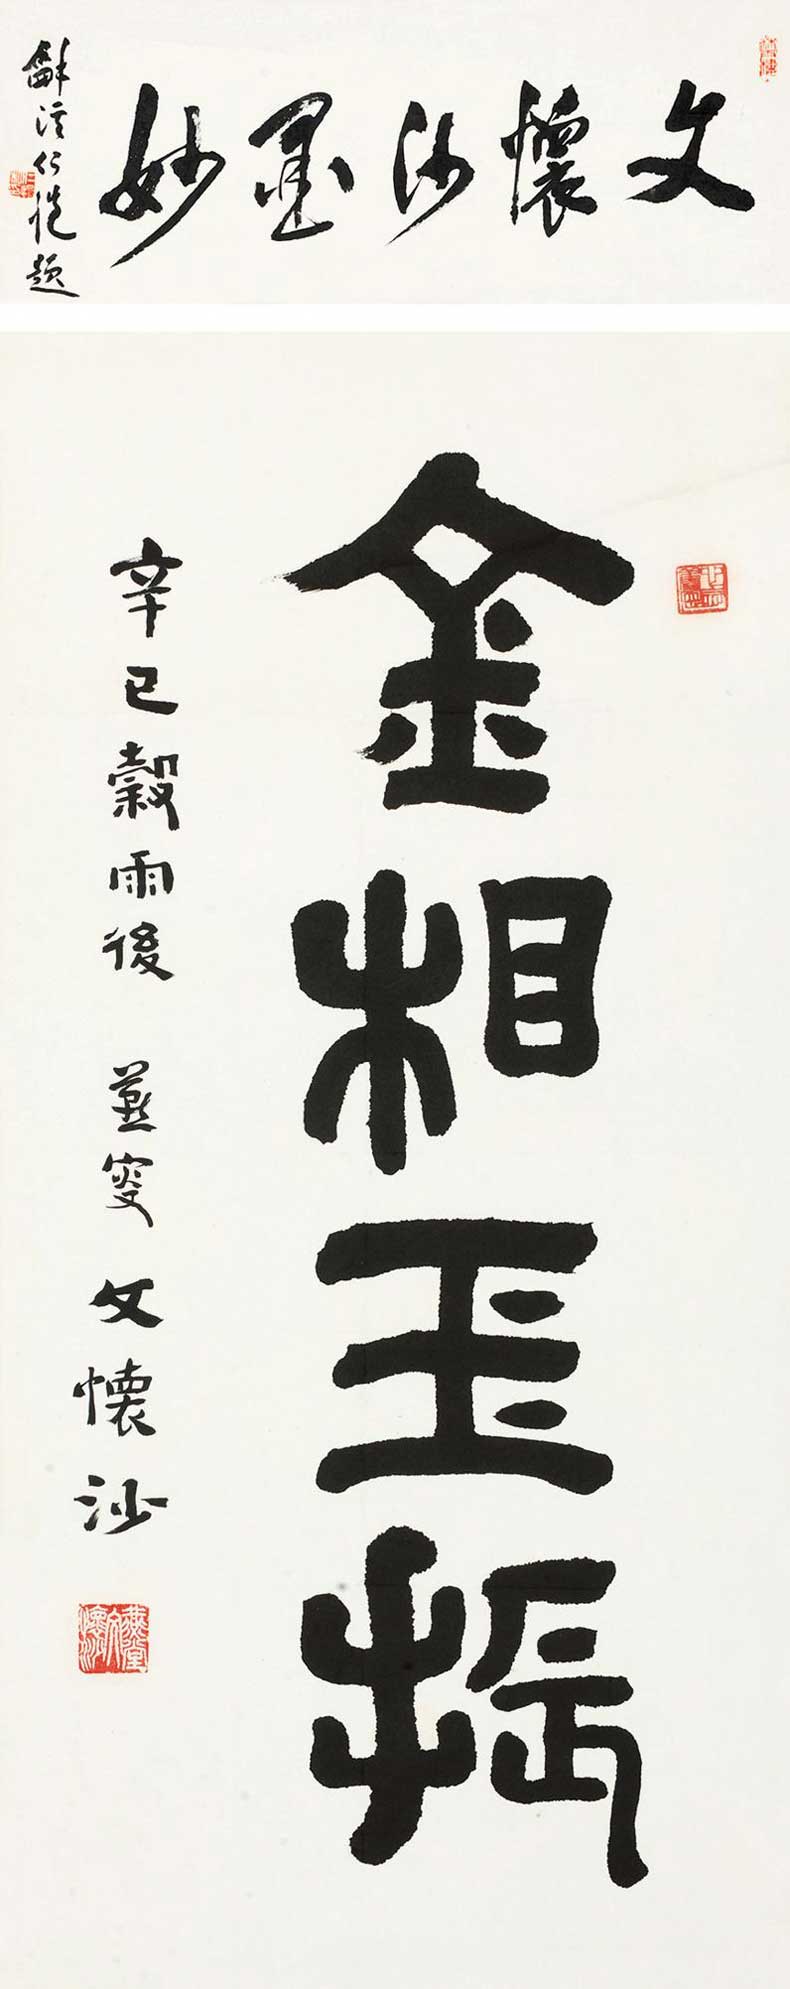 文懷沙墨妙
龢溪仁愷題
金相玉振
辛巳穀雨後 燕叟 文懷沙